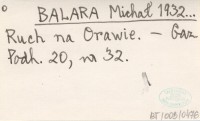 BALARA Michał 1932...
Ruch na Orawie. – Gaz
Podh. 20, nr 32.
BT/008/0476